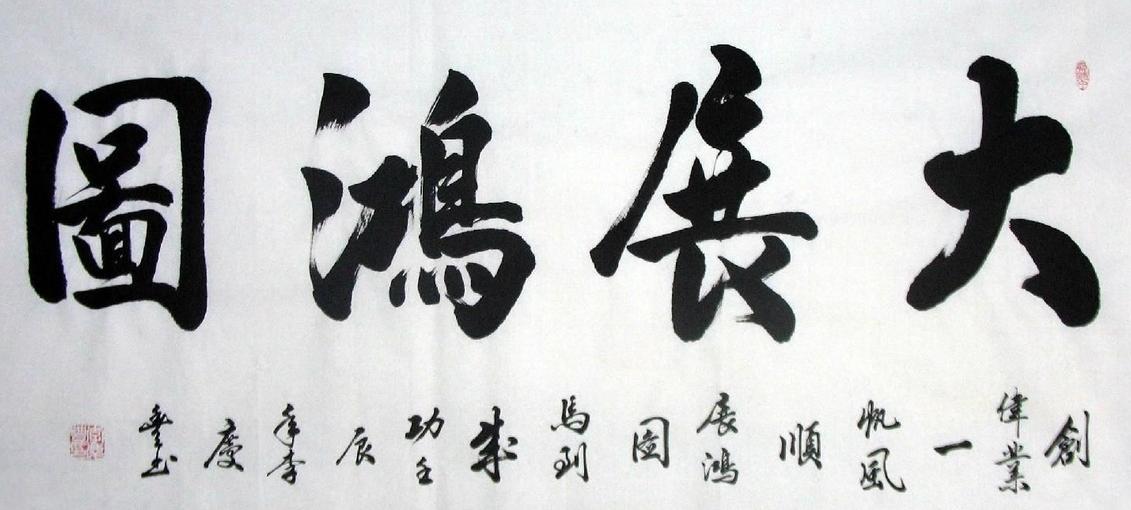 大展鴻圖
創偉業一帆風順展鴻圖馬到成功壬辰年李慶豐书